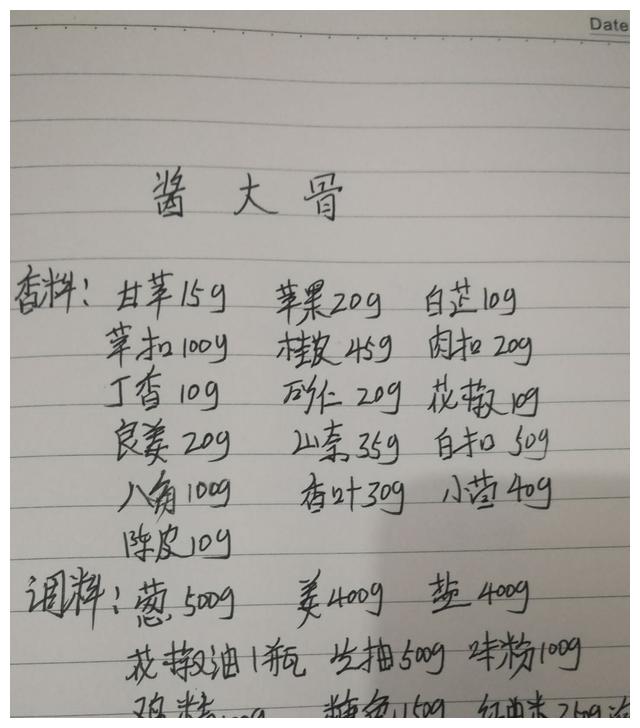 Date
酱大骨
香料: 甘草 15g 草果 20g 白芷 10g
草扣 100g 桂皮 45g 肉扣 20g
丁香 10g 砂仁 20g 花椒 10g
良姜 20g 山奈 35g 白扣 50g
八角 100g 香叶 30g 小茴 40g
陈皮 10g
调料: 葱 500g 姜 400g 盐 400g
花椒油 1瓶 生抽 500g 味粉 100g
鸡精 糖色 150g 红曲米 250g